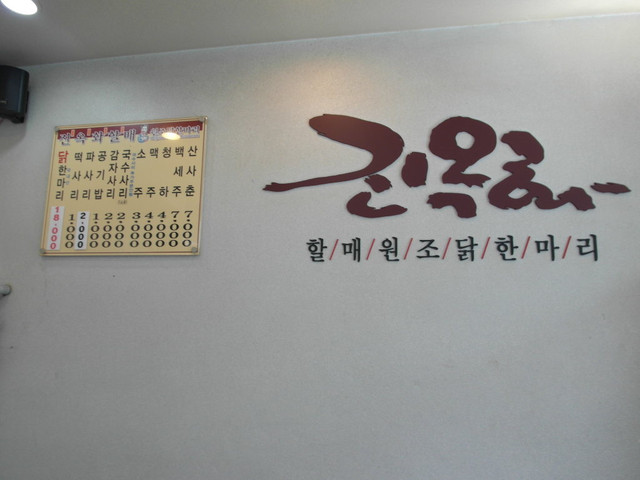 진옥화할매 원조닭한마리
닭한마리 18,000
떡사리 1,000
파사리 2,000
공기밥 1,000
감자사리 2,000
국수사리 2,000
소주 3,000
맥주 4,000
청하 4,000
백세주 7,000
산사춘 7,000
진옥화
할/매/원/조/닭/한/마/리